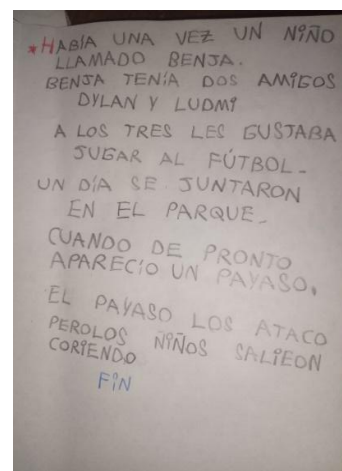 *HABÍA UNA VEZ UN NIÑO
LLAMADO BENJA.
BENJA TENÍA DOS AMIGOS
DYLAN Y LUDMI
A LOS TRES LES GUSTABA
JUGAR AL FÚTBOL.
UN DÍA SE JUNTARON
EN EL PARQUE.
CUANDO DE PRONTO
APARECIO UN PAYASO.
EL PAYASO LOS ATACO
PEROLOS NIÑOS SALIEON
CORIENDO
FIN